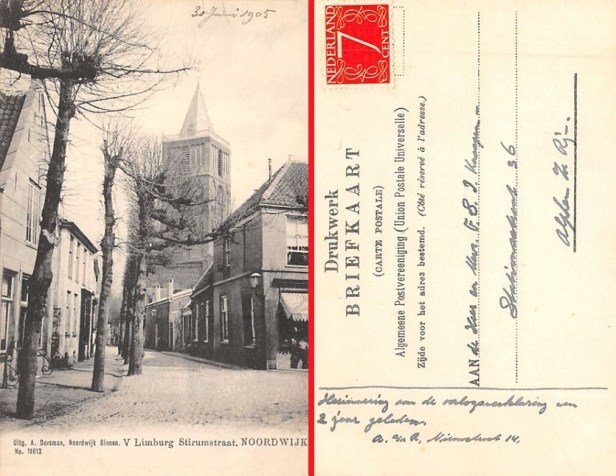 30 Juni 1905
Uitg. A. Dorsman, Noordwijk Binnen. V Limburg Stirumstraat, NOORDWIJK
No. 10613
NEDERLAND
7
CENT
Drukwerk
BRIEFKAART
(CARTE POSTALE)
Algemeene Postvereeniging (Union Postale Universelle)
Zijde voor het adres bestemd. (Côté réservé à l'adresse.)
AAN de Heer en Mevr.
36
Alphen
Herinnering aan de oorlogsverklaring en
2 jaar geleden.
14.